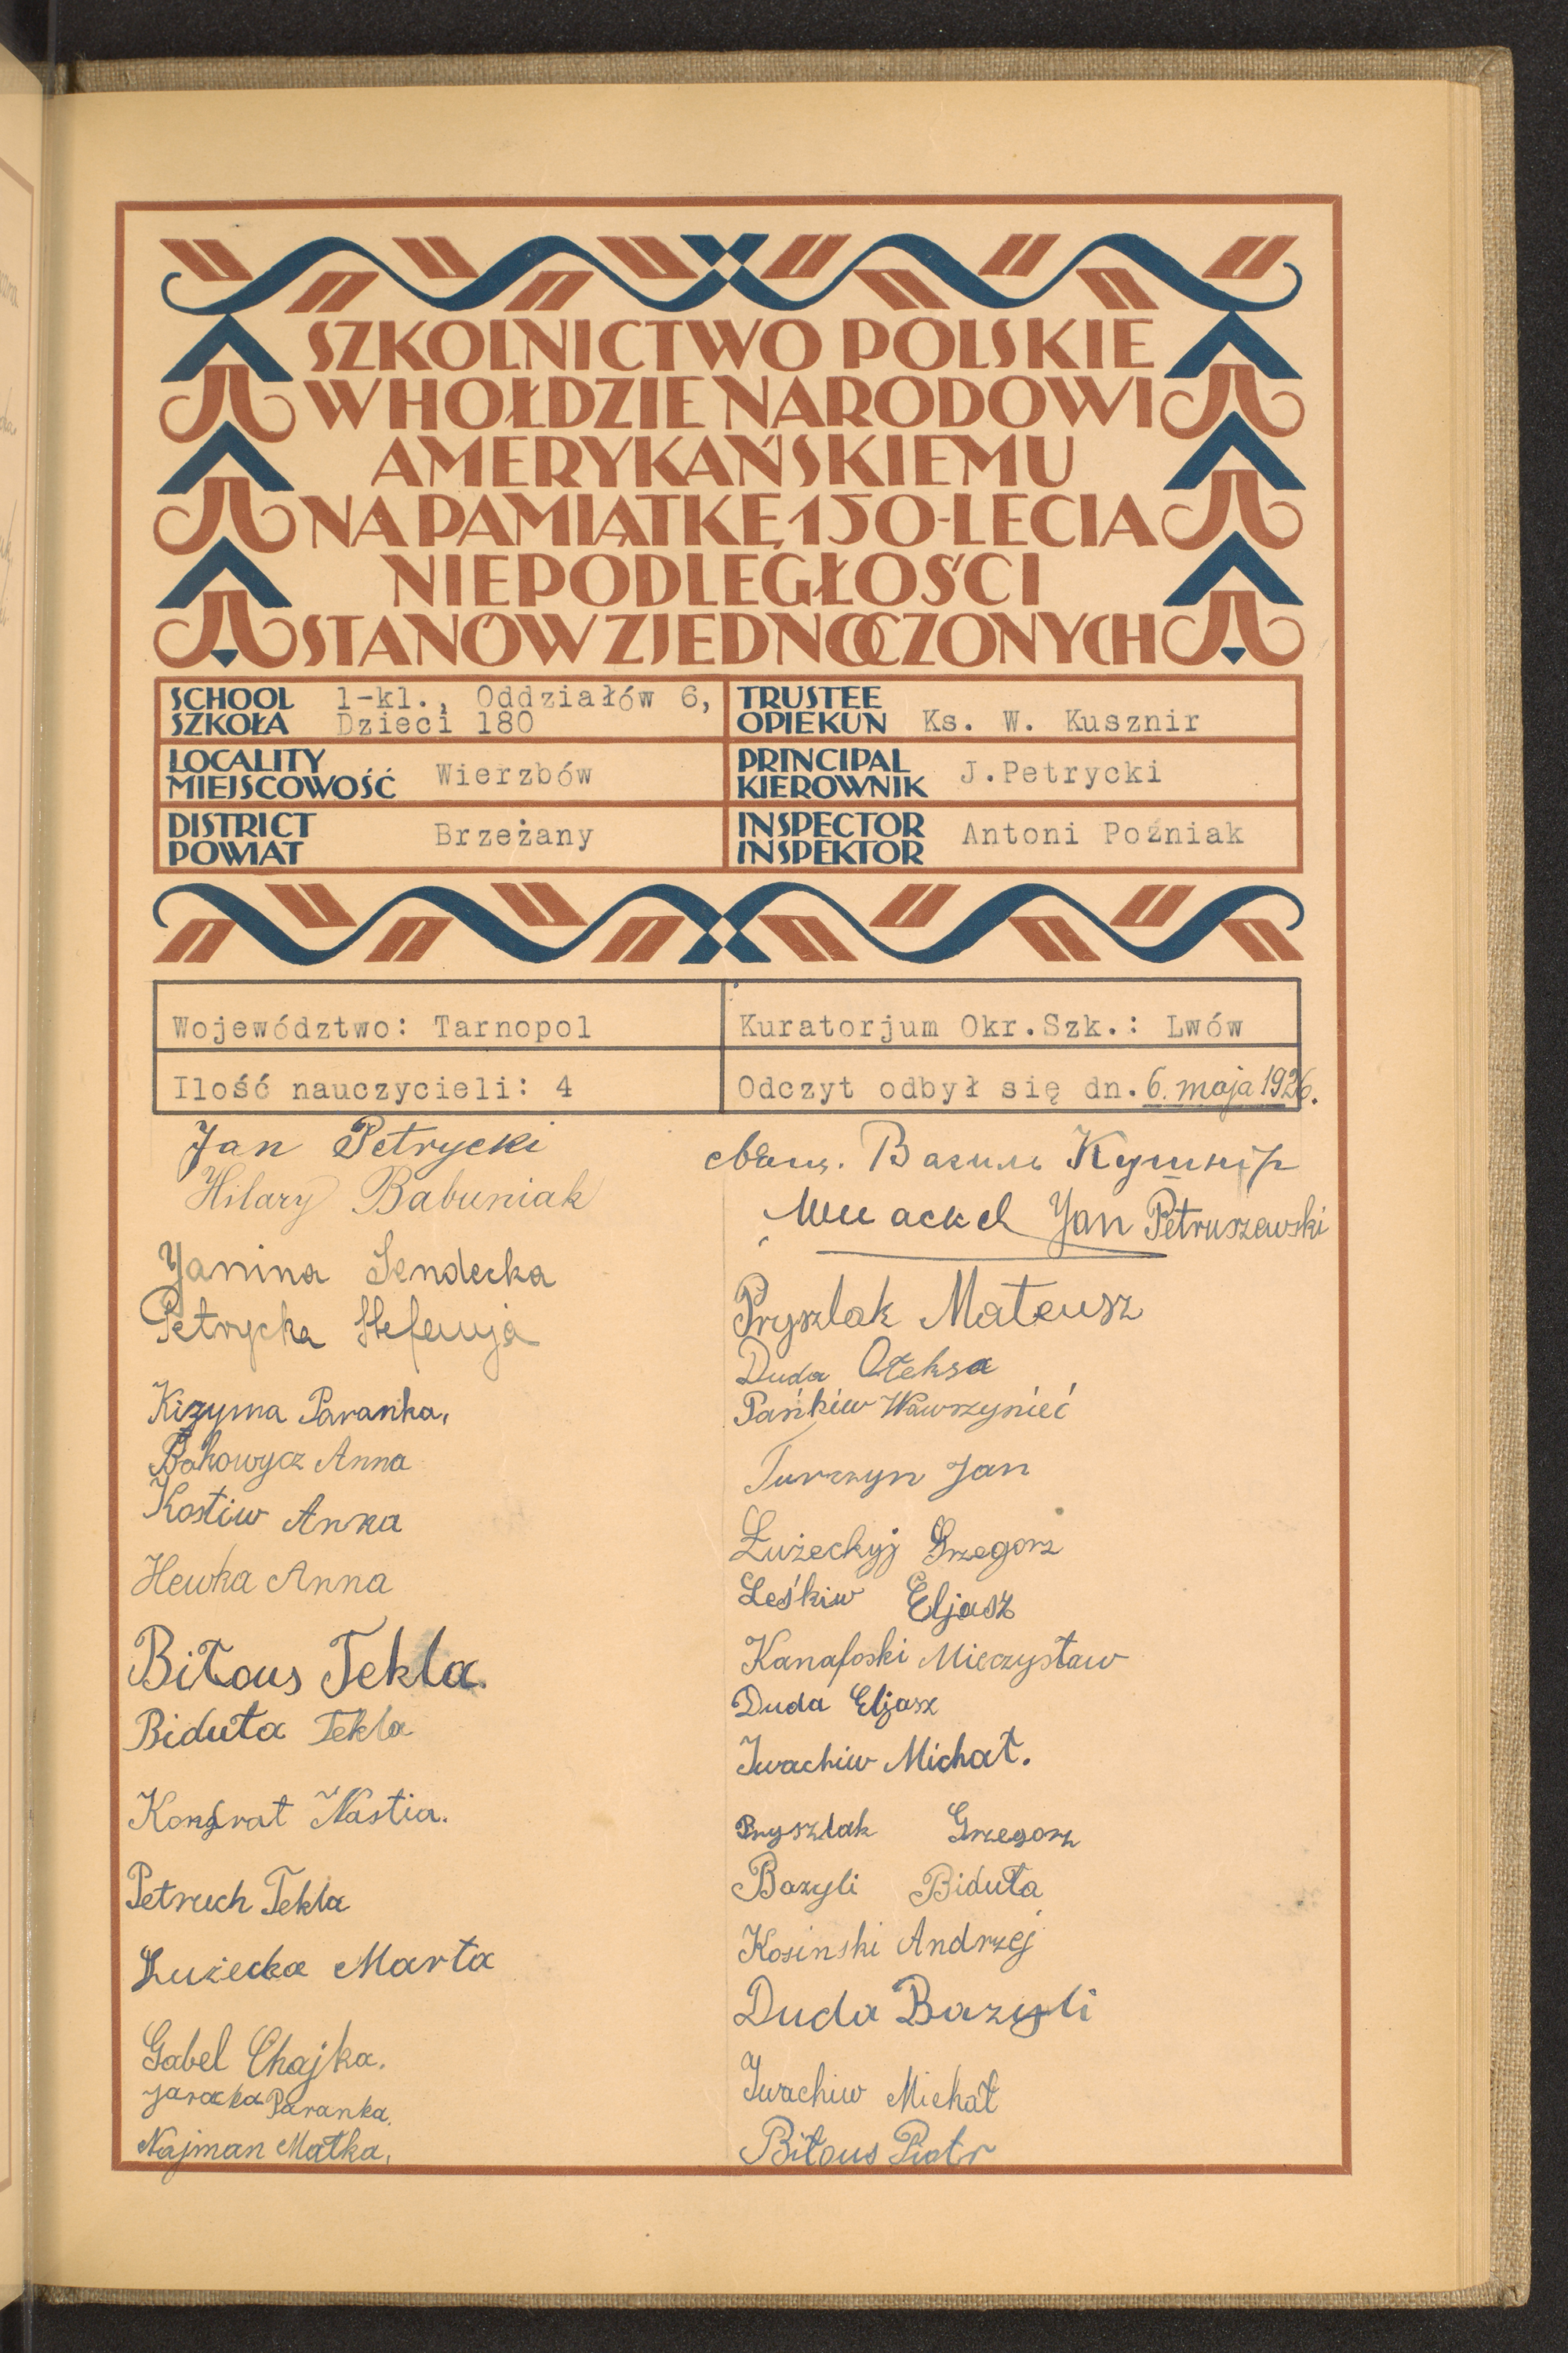 SZKOLNICTWO POLSKIE
W HOŁDZIE NARODOWI
AMERYKAŃSKIEMU
NA PAMIĄTKĘ 150-LECIA
NIEPODLEGŁOŚCI
STANÓW ZJEDNOCZONYCH
SCHOOL
SZKOŁA
1-kl., Oddziałów 6,
Dzieci 180
TRUSTEE
OPIEKUN Ks. W. Kusznir
LOCALITY
MIEJSCOWOŚĆ Wierzbów
PRINCIPAL
KIEROWNIK J.Petrycki
DISTRICT
POWIAT Brzeżany
INSPECTOR
INSPEKTOR Antoni Poźniak
Województwo: Tarnopol
Kuratorjum Okr.Szk.: Lwów
Ilość nauczycieli: 4
Odczyt odbył się dn. 6. maja 1926.
Jan Petrycki
Hilary Babuniak
Janina Sendecka
Petrycka Stefanja
Kizyma Paranka,
Bakowycz Anna
Kostiw Anna
Hewka Anna
Biłous Tekla.
Biduła Tekla
Kondrat Nastia.
Petruch Tekla
Łużecka Marta
Gabel Chajka.
Jaracka Paranka.
Najman Matka,
Василь Кушнір
Jan Petruszewski
Pryszlak Mateusz
Duda Ołeksa
Pańkiw Wawrzynieć
Turczyn Jan
Łużeckyj Grzegorz
Leśkiw Eljasz
Kanafoski Mieczysław
Duda Eljasz
Iwachiw Michał.
Pryszlak Grzegorz
Bazyli Biduła
Kosinski Andrzej
Duda Bazyli
Iwachiw Michał
Biłous Piotr